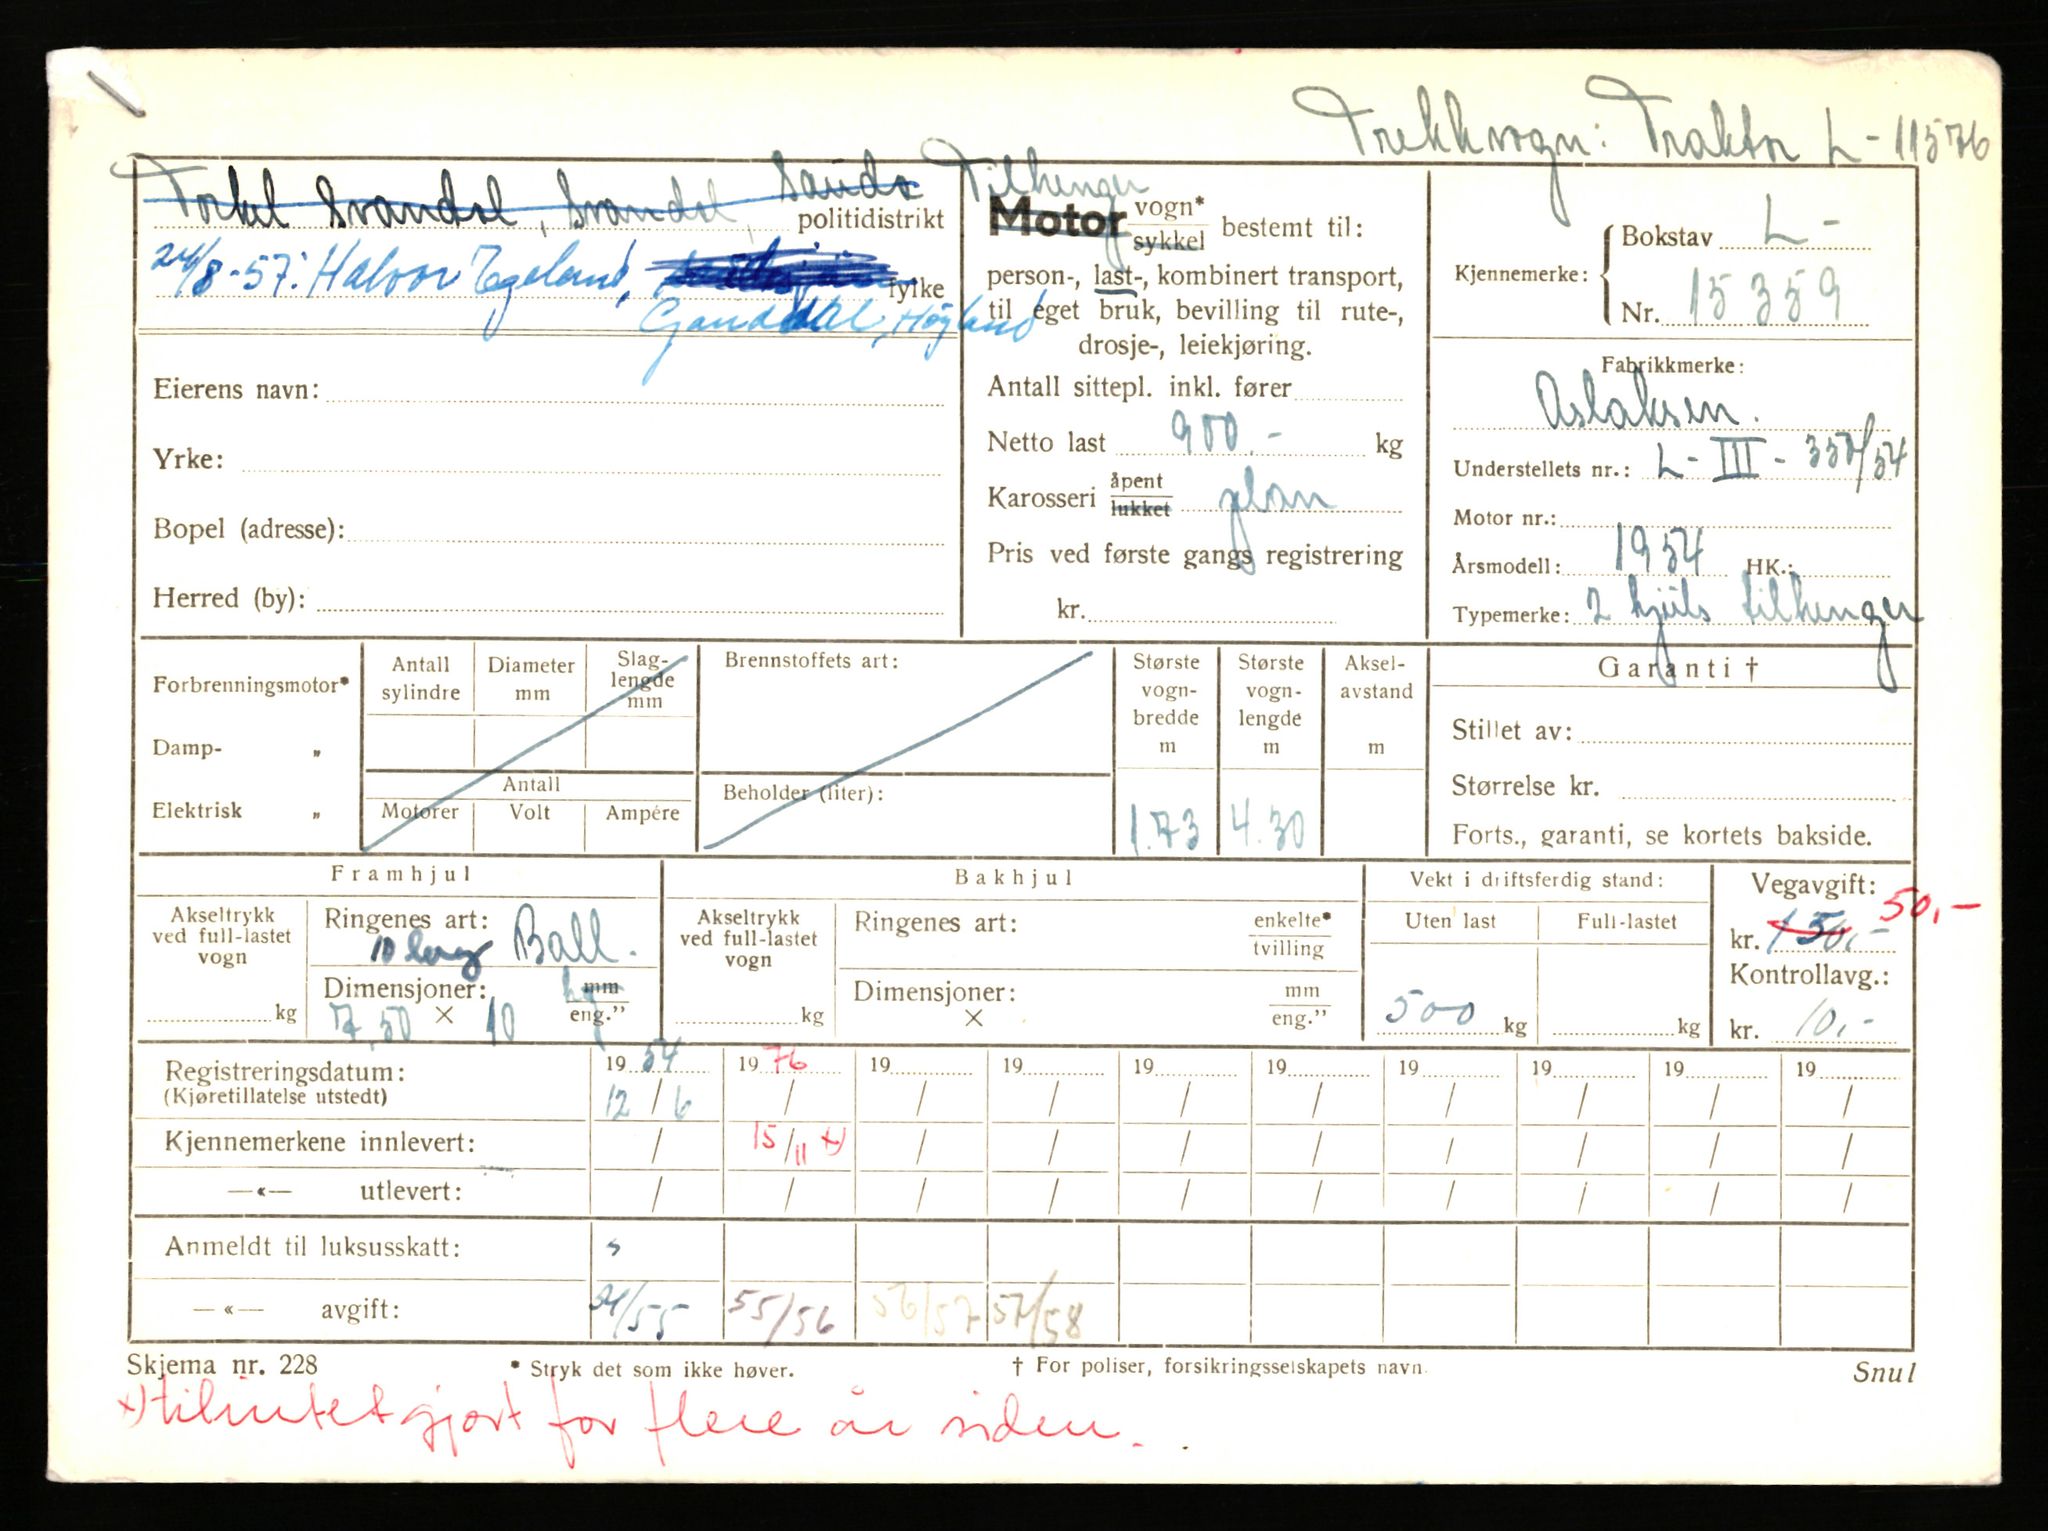 Trekkvogn: Traktor L-11576
Torkel Svandal, Svandal, Sauda politidistrikt
24/8-57: Halvor Egeland, fylke
Ganddal, Høyland
Eierens navn:
Yrke:
Bopel (adresse):
Herred (by):
Tilhenger
Motor vogn* sykkel bestemt til:
person-, last-, kombinert transport,
til eget bruk, bevilling til rute-,
drosje-, leiekjøring.
Antall sittepl. inkl. fører
Netto last 900.- kg
Karosseri åpent lukket plan
Pris ved første gangs registrering
kr.
Kjennemerke: Bokstav L-
Nr. 15359
Fabrikkmerke:
Aslaksen.
Understellets nr.: L-III-
Motor nr.:
Årsmodell: 1954 HK.:
Typemerke: 2 hjuls tilhenger
Forbrenningsmotor*
Damp- „
Elektrisk „
Antall sylindre
Diameter mm
Slag- lengde mm
Antall
Motorer Volt Ampére
Brennstoffets art:
Beholder (liter):
Største vogn- bredde m
1.73
Største vogn- lengde m
4.30
Aksel- avstand m
Garanti †
Stillet av:
Størrelse kr.
Forts., garanti, se kortets bakside.
Framhjul
Akseltrykk ved full-lastet vogn
kg
Ringenes art: Ball.
10 lag
Dimensjoner: mm eng."
7,50 × 10
Bakhjul
Akseltrykk ved full-lastet vogn
kg
Ringenes art: enkelte* tvilling
Dimensjoner: mm eng."
×
Vekt i driftsferdig stand:
Uten last Full-lastet
500 kg kg
Vegavgift: 50,-
kr. 150,-
Kontrollavg.:
kr. 10,-
Registreringsdatum: 1954 1976 19 19 19 19 19 19 19 19
(Kjøretillatelse utstedt) 12/6 / / / / / / / / /
Kjennemerkene innlevert: / 15/11 x) / / / / / / / /
—«— utlevert: / / / / / / / / / /
Anmeldt til luksusskatt:
—«— avgift: 54/55 55/56 56/57 57/58
Skjema nr. 228 * Stryk det som ikke høver. † For poliser, forsikringsselskapets navn. Snul
x) tilintetgjort for flere år siden.